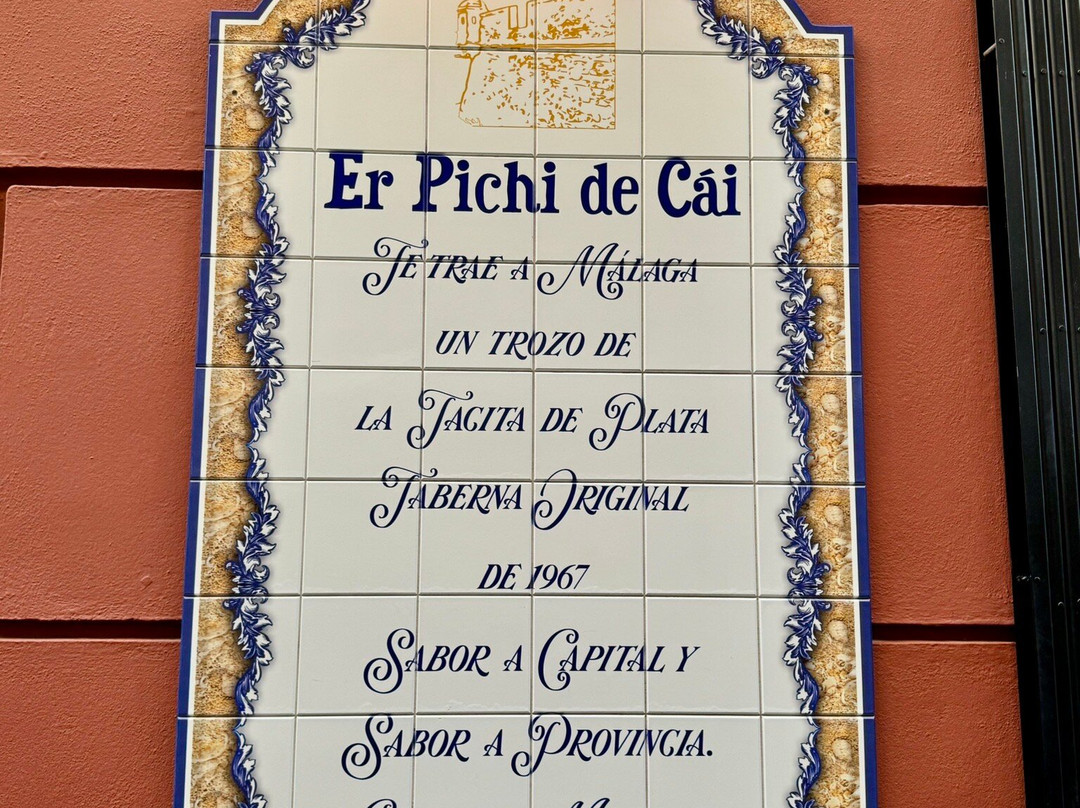 Er Pichi de Cái
TE TRAE A MÁLAGA
UN TROZO DE
LA TACITA DE PLATA
TABERNA ORIGINAL
DE 1967
SABOR A CAPITAL Y
SABOR A PROVINCIA.